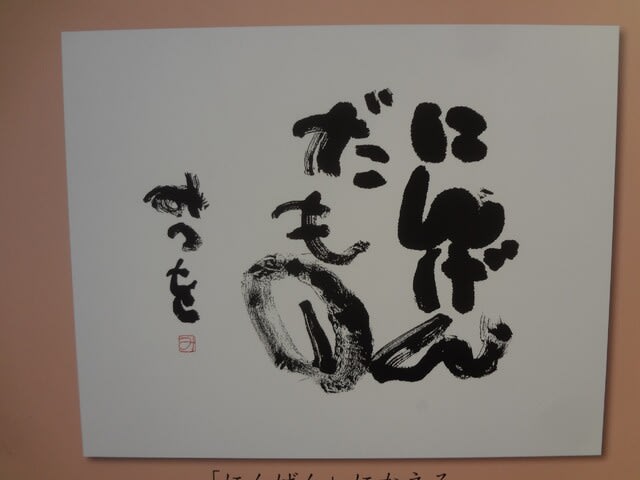 にんげん
だもの
みつを
「にんげん」にかえる